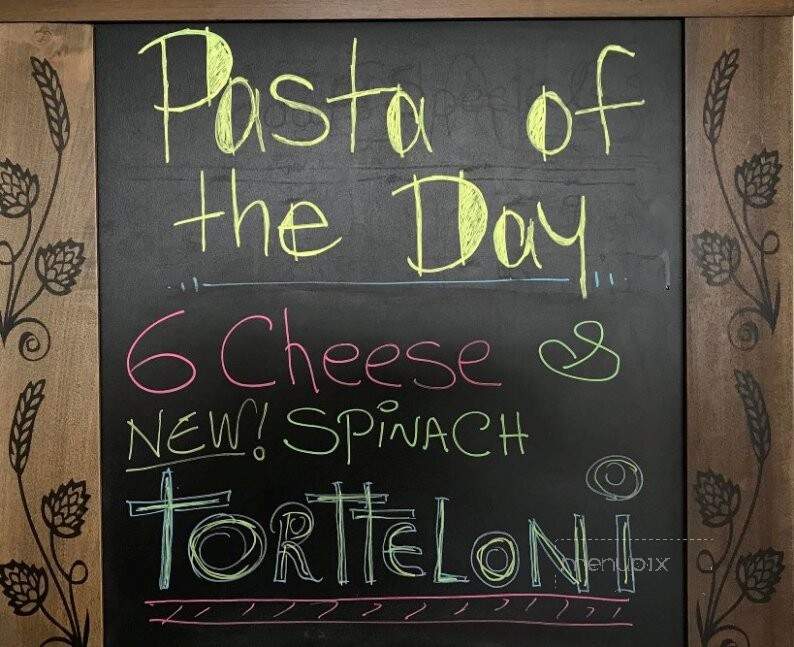 Pasta of
the Day
6 Cheese &
NEW! SPINACH
TORTTELONI
menupix